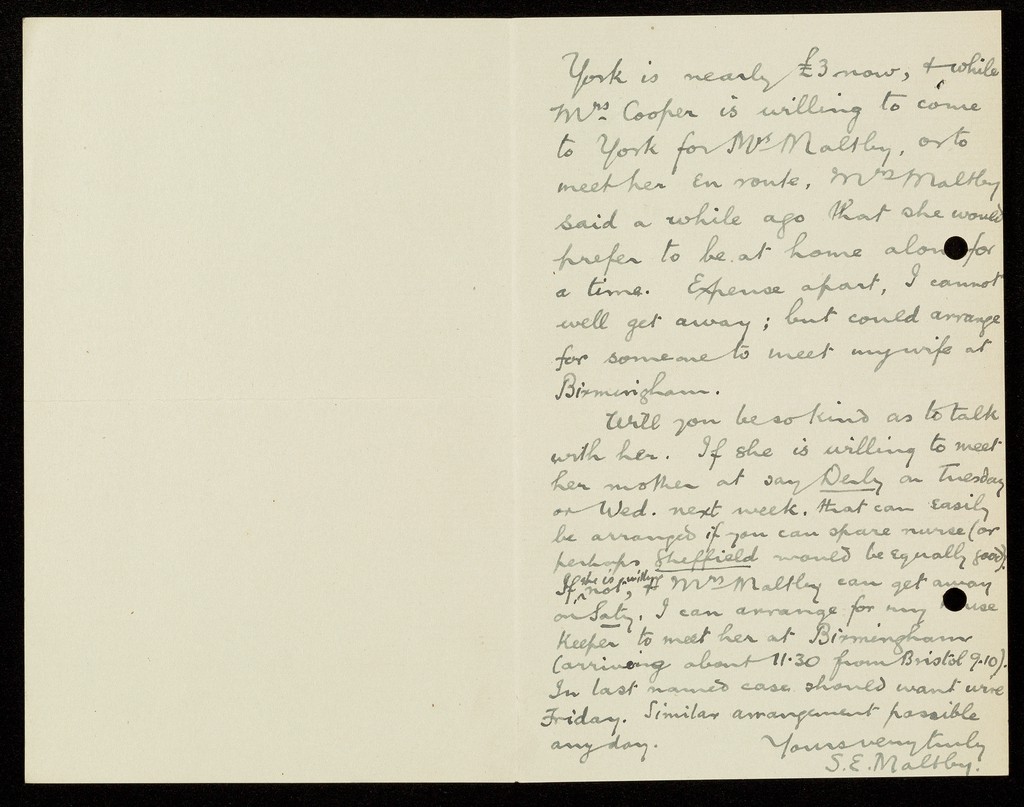 York is nearly £3 now, & while
Mrs Cooper is willing to come
to York for Mrs Maltby, or to
meet her en route, Mrs Maltby
said a while ago that she would
prefer to be at home alone for
a time. Expense apart, I cannot
well get away; but could arrange
for someone to meet my wife at
Birmingham.
Will you be so kind as to talk
with her. If she is willing to meet
her mother at say Derby on Tuesday
or Wed. next week, that can easily
be arranged if you can spare nurse (or
perhaps Sheffield would be equally good).
If she is not willing, & Mrs Maltby can get away
on Saty, I can arrange for my house
keeper to meet her at Birmingham
(arriving about 11.30 from Bristol 9.10).
In last named case should want wire
Friday. Similar arrangement possible
any day.
Yours very truly
S. E. Maltby.